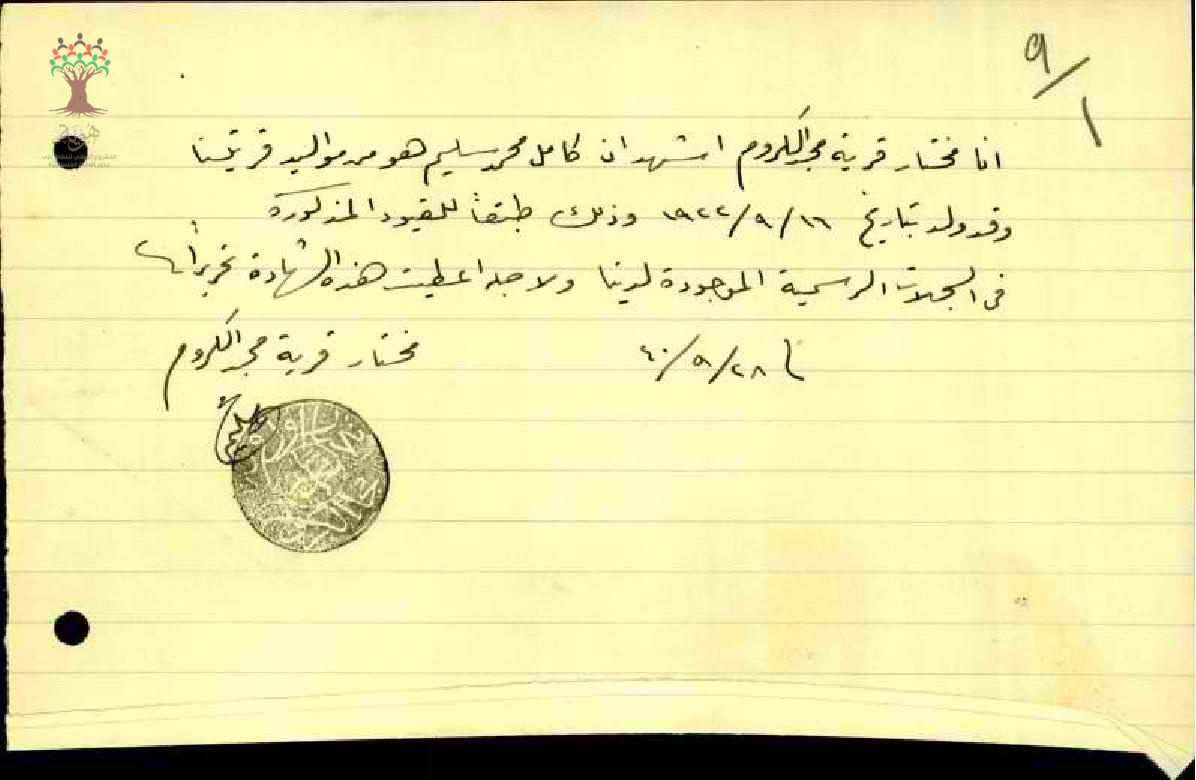 ٩/١
انا مختار قرية مجد الكروم اشهد ان كامل محمد سليم هو من مواليد قريتنا
وقد ولد بتاريخ ١٦/٩/١٩٢٢ وذلك طبقاً للقيود المذكورة
في السجلات الرسمية الموجودة لدينا ولاجله اعطيت هذه الشهادة تحريراً
في ٢٨/٩/٤٠
مختار قرية مجد الكروم
هوية